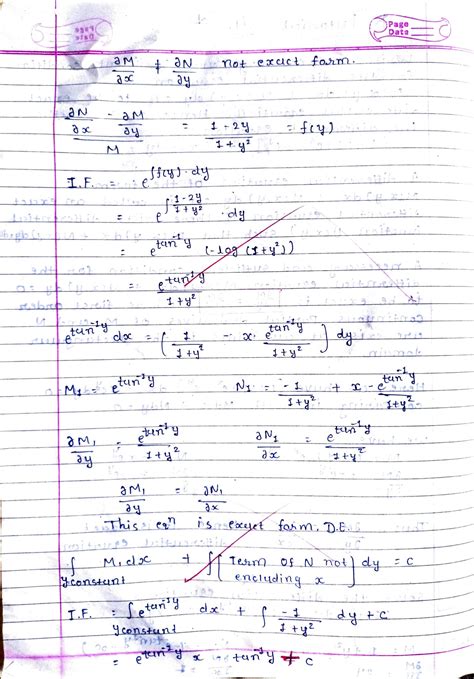 Page
Date
∂M/∂x ≠ ∂N/∂y not exact form.
(∂N/∂x - ∂M/∂y)/M = (1-2y)/(1+y²) = f(y)
I.F. = e^∫f(y)·dy
= e^∫(1-2y)/(1+y²) ·dy
= e^tan⁻¹y (-log (1+y²))
= e^tan⁻¹y/(1+y²)
e^tan⁻¹y dx = (1/(1+y²) - x· e^tan⁻¹y/(1+y²)) dy
M₁ = e^tan⁻¹y N₁ = -1/(1+y²) + x - e^tan⁻¹y/(1+y²)
∂M₁/∂y = e^tan⁻¹y/(1+y²) ∂N₁/∂x = e^tan⁻¹y/(1+y²)
∂M₁/∂y = ∂N₁/∂x
This eqⁿ is exact form. D.E.
∫ M₁dx + ∫[Term of N not encluding x] dy = c
y constant
I.F. = ∫e^tan⁻¹y dx + ∫ -1/(1+y²) dy + c
y constant
= e^tan⁻¹y x - tan⁻¹y + c